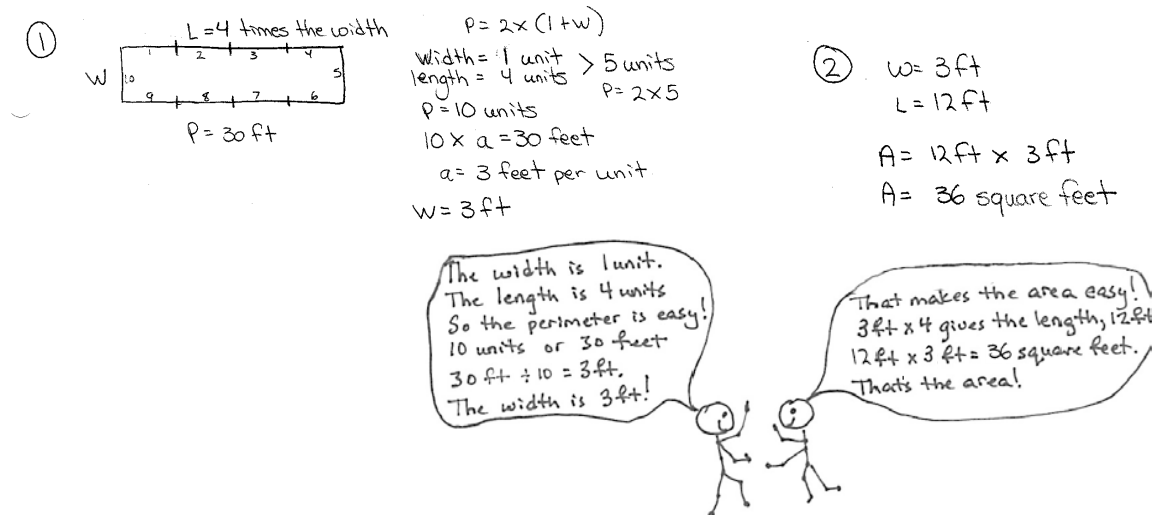 ①
L = 4 times the width
W
1 2 3 4
10 5
9 8 7 6
P = 30 ft
P = 2 x (l + w)
width = 1 unit > 5 units
length = 4 units
P = 2 x 5
P = 10 units
10 x a = 30 feet
a = 3 feet per unit
W = 3 ft
②
W = 3 ft
L = 12 ft
A = 12 ft x 3 ft
A = 36 square feet
The width is 1 unit.
The length is 4 units
So the perimeter is easy!
10 units or 30 feet
30 ft ÷ 10 = 3 ft.
The width is 3 ft!
That makes the area easy!
3 ft x 4 gives the length, 12 ft
12 ft x 3 ft = 36 square feet.
That's the area!